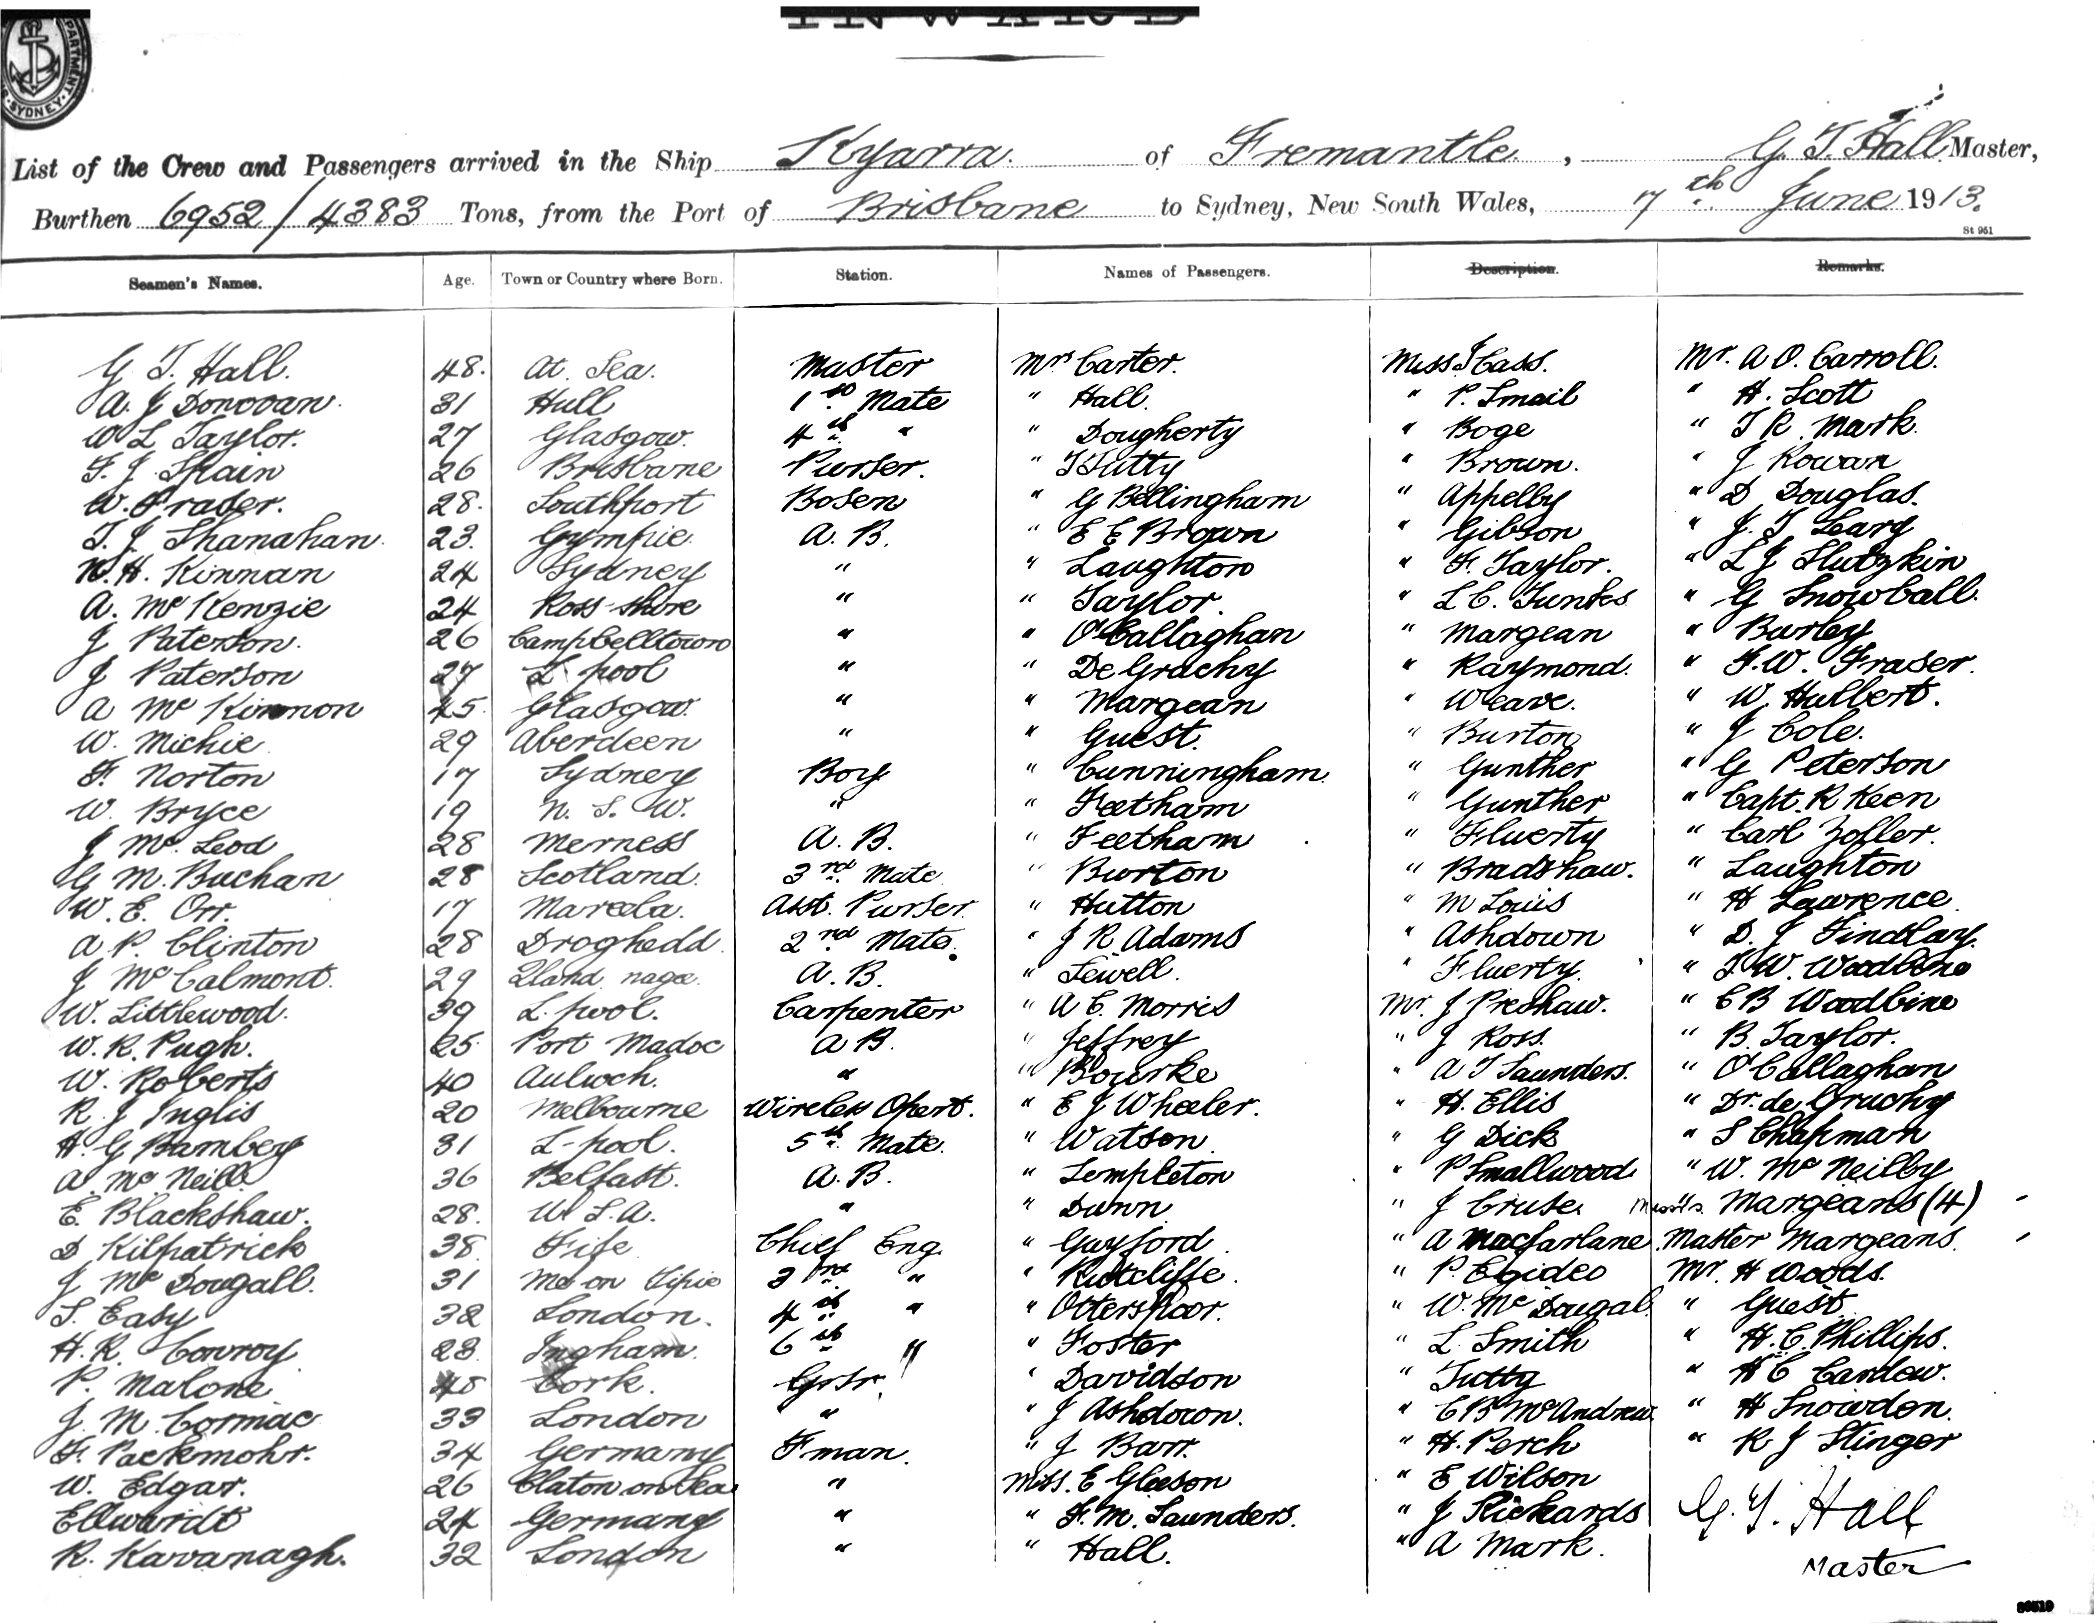 INWARD
DEPARTMENT SYDNEY
List of the Crew and Passengers arrived in the Ship Kyarra. of Fremantle, G. T. Hall Master,
Burthen 6952/4383 Tons, from the Port of Brisbane to Sydney, New South Wales, 7th June 1913.
St 951
Seamen's Names. Age. Town or Country where Born. Station. Names of Passengers. Description. Remarks.
G T. Hall. 48. At Sea. Master Mrs Carter. Miss J Cass. Mr. A O. Carroll.
A. J Donovan. 31 Hull 1st Mate " Hall. " P. Smail " H. Scott
W L Taylor. 27 Glasgow. 4th " " Dougherty " Boge " T R. Mark.
F. J. Spain 26 Brisbane Purser. " T Tutty " Brown. " J Rowan
W. Frader. 28. Southport Bosen " G Bellingham " Appelby " D Douglas.
T. J. Shanahan. 23. Gympie A. B. " E E Brown " Gibson " J. T Leary
N. H. Kinnan 24 Sydney " " Laughton " F. Taylor. " L J Slutzkin
A. McKenzie 24 Ross-shire " " Taylor. " L C. " G Snowball.
J Paterson. 26 Campbelltown " " O'Callaghan " Margean " Burley
J Paterson 27 L'pool " " De Grachy " Raymond. " F. W. Fraser.
A McKinnon 45. Glasgow. " " Margean " Weave. " W. Hulbert.
W. Michie 29 Aberdeen " " Guest. " Burton " J Cole.
F. Norton 17 Sydney Boy " Cunningham. " Gunther " G Peterson
W. Bryce 19 N. S. W. " " Feetham " Gunther " Capt. R Keen
J McLeod 28 Merness A. B. " Feetham " Fluerty " Carl Zoller.
G M. Buchan 28 Scotland. 3rd Mate " Burton " Bradshaw. " Laughton
W. E. Orr. 17 Asst. Purser. " Hutton " M Louis " H Lawrence.
A P. Clinton 28 Droghedd. 2nd Mate. " J R Adams " Ashdown " D. J Findlay.
J McCalmont. 29 A. B. " Sewell. " Fluerty. " T W. Woodbine
W. Littlewood. 39 L.pool. Carpenter " A E. Morris Mr. J Preshaw. " E B Woodbine
W. R. Pugh. 25 Port Madoc A B. " Jeffrey " J Ross. " B. Taylor.
W. Roberts 40 " " Bourke " A T Saunders. " O'Callaghan
R. J Inglis 20 Melbourne Wireless Opert. " E J Wheeler. " H. Ellis " Dr. de Gruchy
H. G Bamber 31 L-pool. 5th Mate. " Watson " G Dick " S Chapman
A. McNeill 36 Belfast. A. B. " Templeton " P Smallwood " W. McNeilby
E. Blackshaw. 28. U.S.A. " " Dunn " J Cruse. Misses Margeans (4)
D Kilpatrick 38. Fife Chief Eng. " Gayford " A Macfarlane. Master Margeans.
J McDougall. 31 3rd " " Rutcliffe. " P. Egideo Mr. H Woods.
S. Easy 38 London. 4th " " Otterspoor. " W. McDougal. " Guest
H. R. Conroy 23. Ingham. 6th " " Foster " L. Smith " H. C. Phillips.
P. Malone 40 Cork. Grsr. " Davidson " Tutty " H C Cardew.
J. M. Cormac 33 London " " J Ashdown. " C B McAndrew. " H Snowdon.
F. Packmohr. 34 Germany Fman. " J Barr. " H. Perch " R J Stinger
W. Edgar. 26 Claton on Sea " Miss. E Gleeson " E Wilson
Ellwardt 24 Germany " " F. M. Saunders. " J Rickards G. T. Hall
R. Kavanagh. 32 London " " Hall. " A Mark. Master